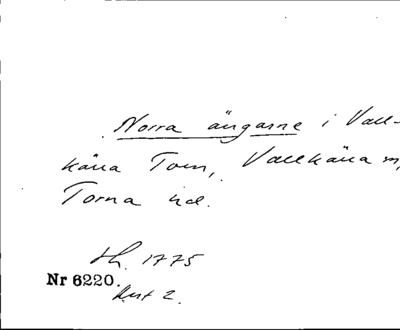 Norra ängarne i Vall-
kärra Torn, Vallkärra
Torna hd.
1775
Nr 6220.
2.